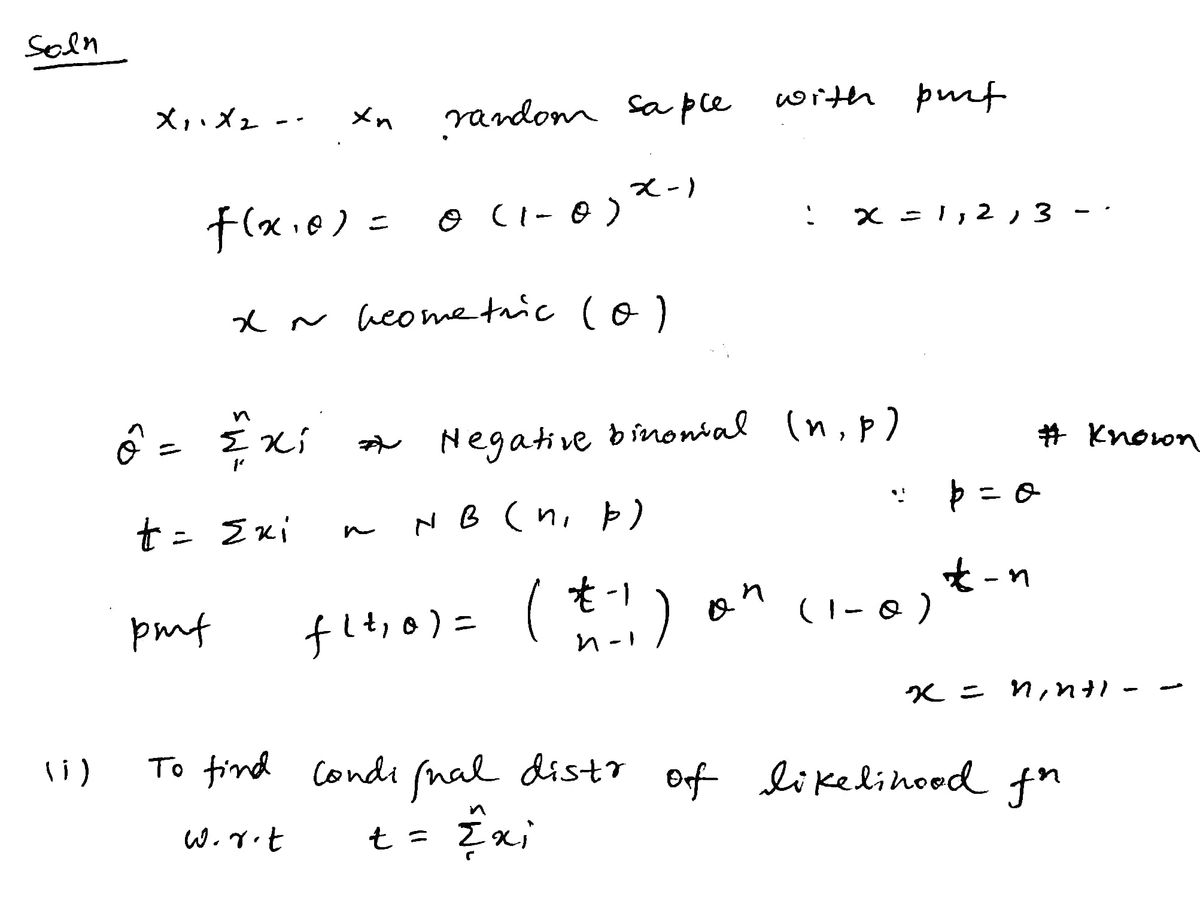 Soln
x₁, x₂ -- xn random saple with pmf
f(x,θ) = θ (1-θ)^{x-1} : x = 1, 2, 3 --
x ~ Geometric (θ)
θ̂ = Σ₁ⁿ xi ~ Negative binomial (n, p) # Known
t = Σxi ~ NB (n, p) ∵ p = θ
pmf f(t, θ) = \binom{t-1}{n-1} θ^n (1-θ)^{t-n}
x = n, n+1 - -
(i) To find condi nal distr of likelihood fn
w.r.t t = Σ₁ⁿ xi